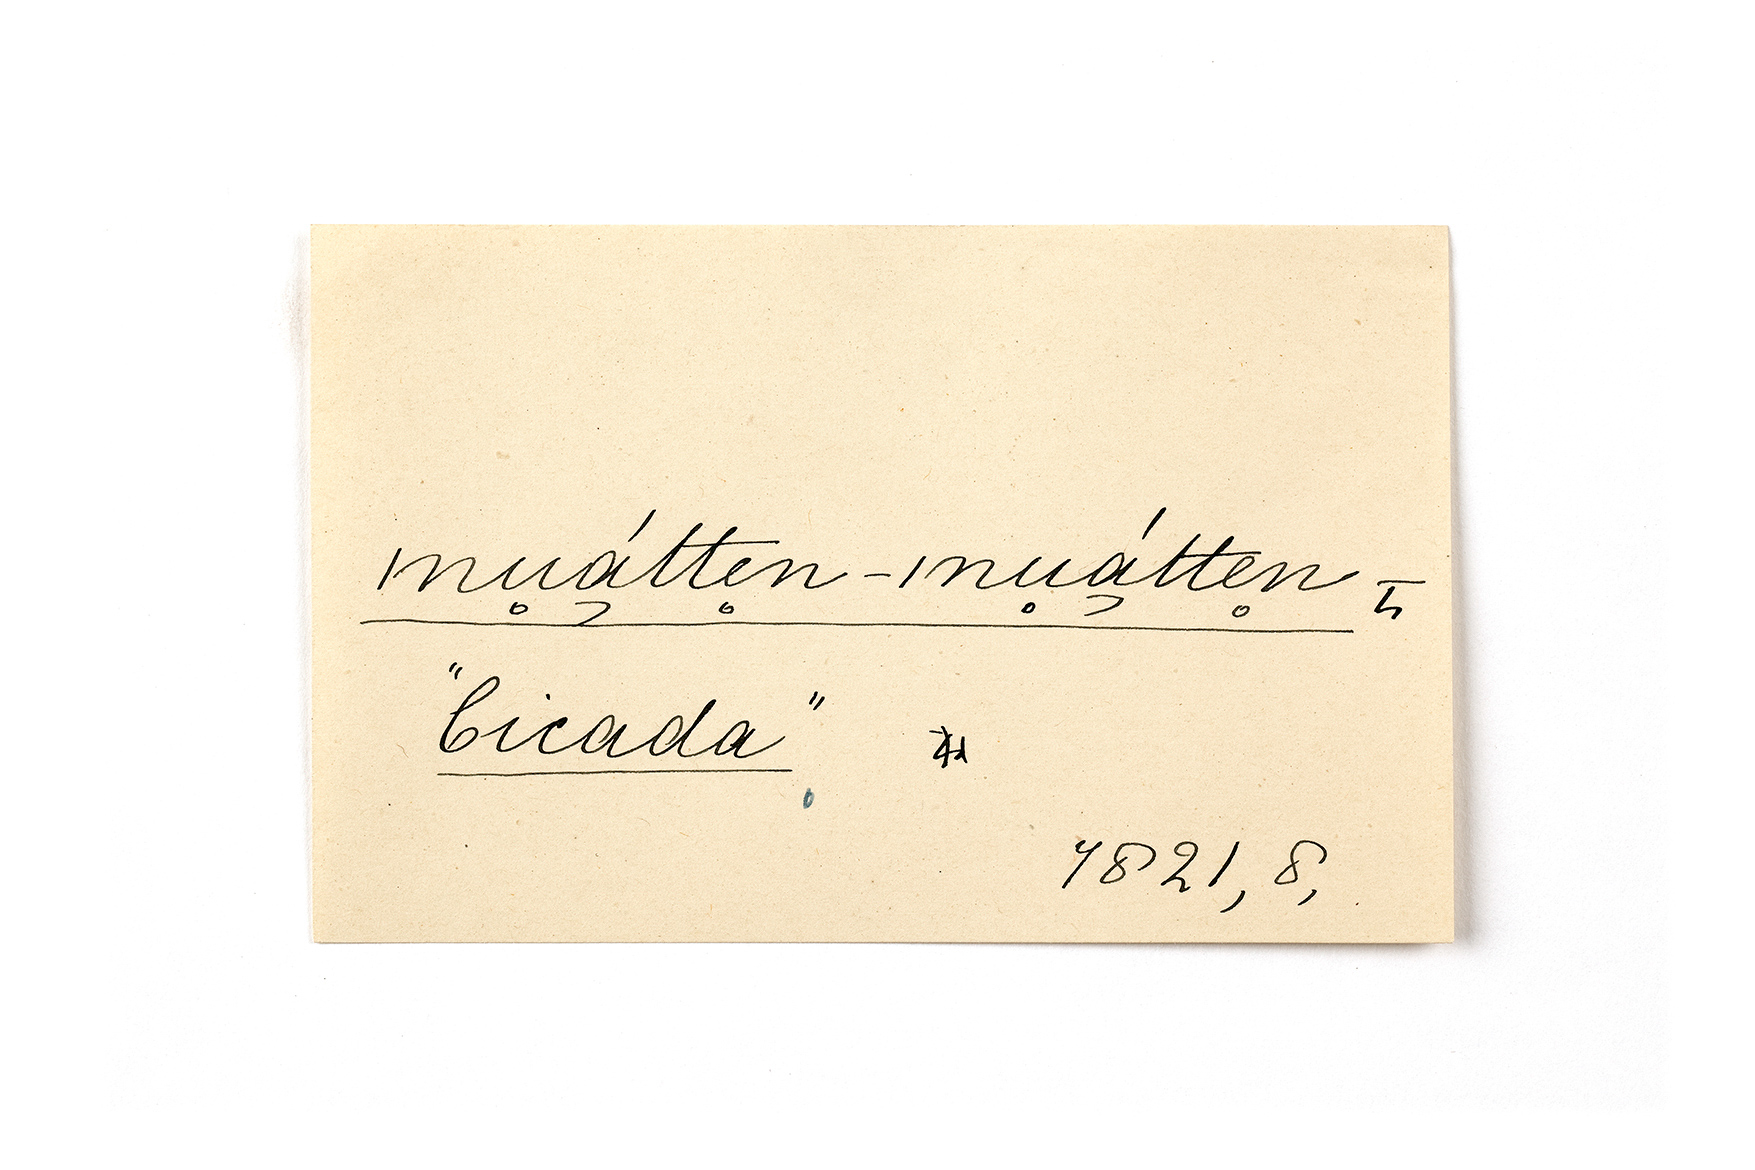 ınu̥á̡tte̥n-ınu̥á̡tte̥n
"Cicada"
4821,8,